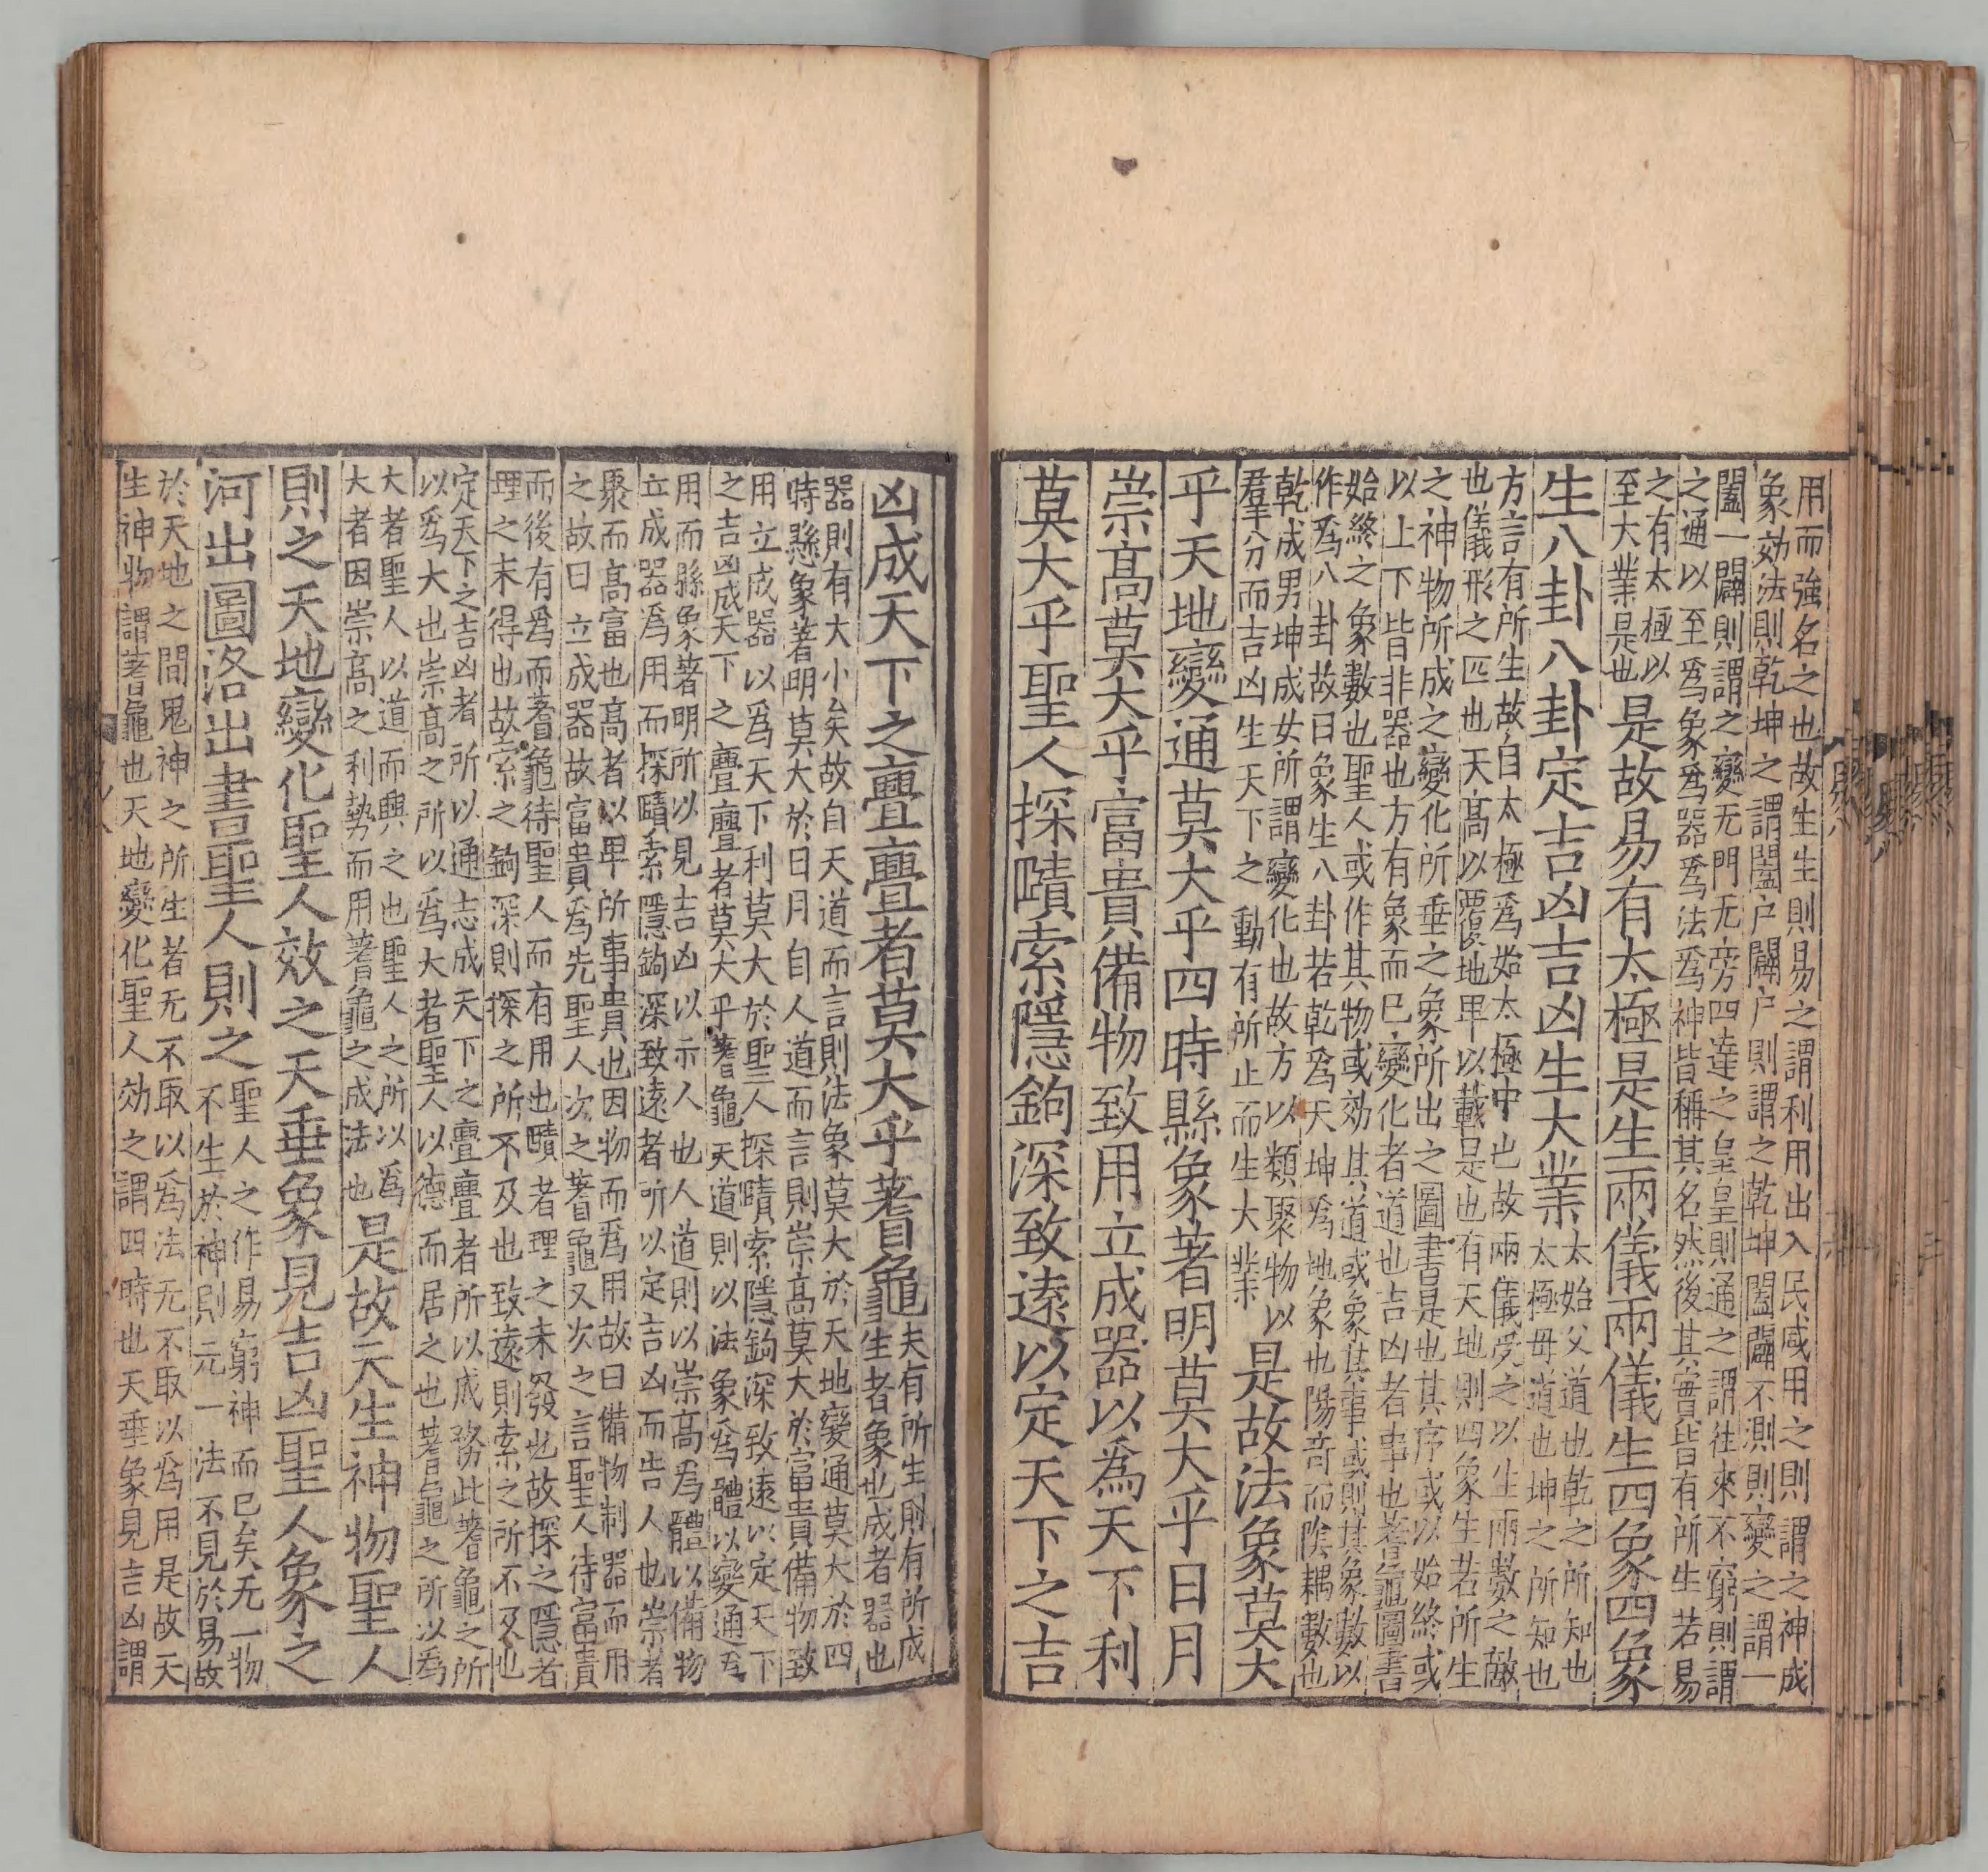 用而強名之也故生生則易之謂利用出入民咸用之則謂之神成
象効法則乾坤之謂闔户闢户則謂之乾坤闔闢不測則變之謂一
闔一闢則謂之變无門无旁四達之皇皇則通之謂往來不窮則謂
之通以至爲象爲器爲法爲神皆稱其名然後其實皆有所生若易
之有太極以
至大業是也
是故易有太極是生兩儀兩儀生四象四象
生八卦八卦定吉凶吉凶生大業
太始父道也乾之所知也
太極毋道也坤之所知也
方言有所生故自太極爲始太極中也故兩儀受之以生兩數之敵
也儀形之匹也天髙以覆地卑以載是也有天地則四象生若所生
之神物所成之變化所垂之象所出之圖書是也其序或以始終或
以上下皆非器也方有象而已變化者道也吉凶者事也蓍龜圖書
始終之象數也聖人或作其物或効其道或象其事或則其象數以
作爲八卦故曰象生八卦若乾爲天坤爲地象也陽奇而陰耦數也
乾成男坤成女所謂變化也故方以類聚物以
羣分而吉凶生天下之動有所止而生大業
是故法象莫大
乎天地變通莫大乎四時縣象著明莫大乎日月
崇髙莫大乎富貴備物致用立成器以爲天下利
莫大乎聖人探賾索隱鉤深致遠以定天下之吉
凶成天下之亹亹者莫大乎蓍龜
夫有所生則有所成
生者象也成者器也
器則有大小矣故自天道而言則法象莫大於天地變通莫大於四
時懸象著明莫大於日月自人道而言則崇髙莫大於富貴備物致
用立成器以爲天下利莫大於聖人探賾索隱鉤深致遠以定天下
之吉凶成天下之亹亹者莫大乎蓍龜天道則以法象爲體以變通爲
用而縣象著明所以見吉凶以示人也人道則以崇髙爲體以備物
立成器爲用而探賾索隱鉤深致遠者所以定吉凶而告人也崇者
聚而髙富也髙者以卑所事貴也因物而爲用故曰備物制器而用
之故曰立成器故富貴爲先聖人次之蓍龜又次之言聖人待富貴
而後有爲而蓍龜待聖人而有用也賾者理之未發也故探之隱者
理之未得也故索之鉤深則探之所不及也致遠則索之所不及也
定天下之吉凶者所以通志成天下之亹亹者所以成務此蓍龜之所
以爲大也崇髙之所以爲大者聖人以德而居之也蓍龜之所以爲
大者聖人以道而興之也聖人之所以爲
大者因崇髙之利勢而用蓍龜之成法也
是故天生神物聖人
則之天地變化聖人效之天垂象見吉凶聖人象之
河出圖洛出書聖人則之
聖人之作易窮神而已矣无一物
不生於神則元一法不見於易故
於天地之間鬼神之所生者无不取以爲法无不取以爲用是故天
生神物謂蓍龜也天地變化聖人効之謂四時也天垂象見吉凶謂